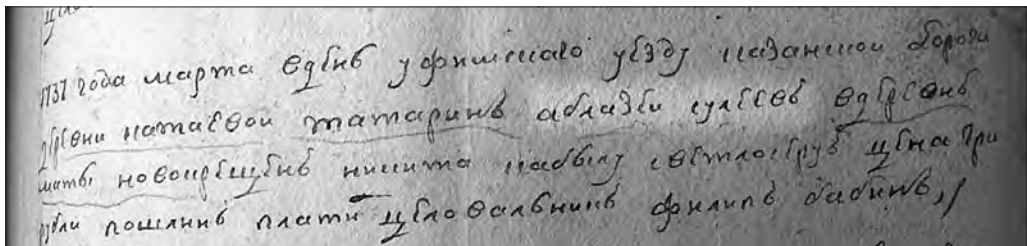 1737 года марта в день уфимскаго уезду казанскои дороги
деревни катаевои татаринъ аблязеи сулеевъ
новокрещенъ никита кабылу светлосеру цена три
рубли пошлинъ плати целовальникъ филипъ бабинъ